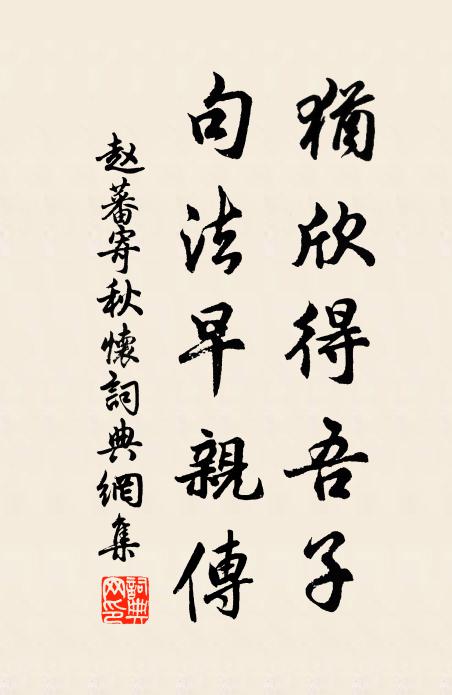 猶欣得吾子
句法早親傳
赵蕃寄秋懷詞典網集
詞典网印